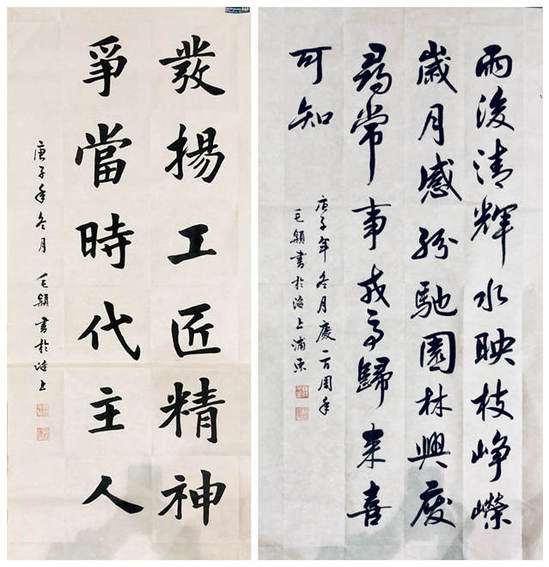 發揚工匠精神
爭當時代主人
庚子年冬月 毛 書於海上
雨後清輝水映枝崢嶸
歲月感紛馳園林興廢
尋常事 歸来喜
可知
庚子年冬月慶百周年
毛 書於海上浦東